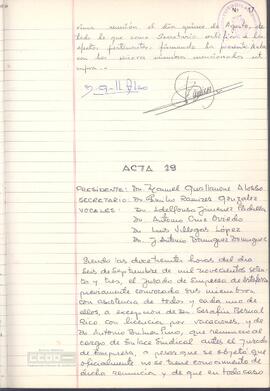 xima reunión el día quince de Agosto, de
todo lo que como Secretario certifico a los
efectos pertinentes, firmando la presente Acta
con los miembros mencionados ut
supra.
ACTA 19
PRESIDENTE: Dn. Manuel Guallanone Alosso
SECRETARIO: Dn. Emilio Ramirez Gonzalez
VOCALES: Dn. Idelfonso Jimenez Padilla
Dn. Antonio Cruz Oviedo
Dn. Luis Villegas López
Dn. J. Antonio Dominguez Dominguez
Siendo las diecinueve horas del día
seis de Septiembre de mil novecientos seten-
ta y tres, el Jurado de Empresa de
previamente convocado sus miembros
con asistencia de todos y cada uno de
ellos, a excepción de Dn. Serafin Bernal
Rico con licencia por vacaciones, y de
Dn. Antonio que renuncia al
cargo de Enlace Sindical antes el Jurado
de Empresa, a pesar que se objetó que
oficialmente no se tiene conocimiento de
dicha renuncia y de que en todo caso
ccoo